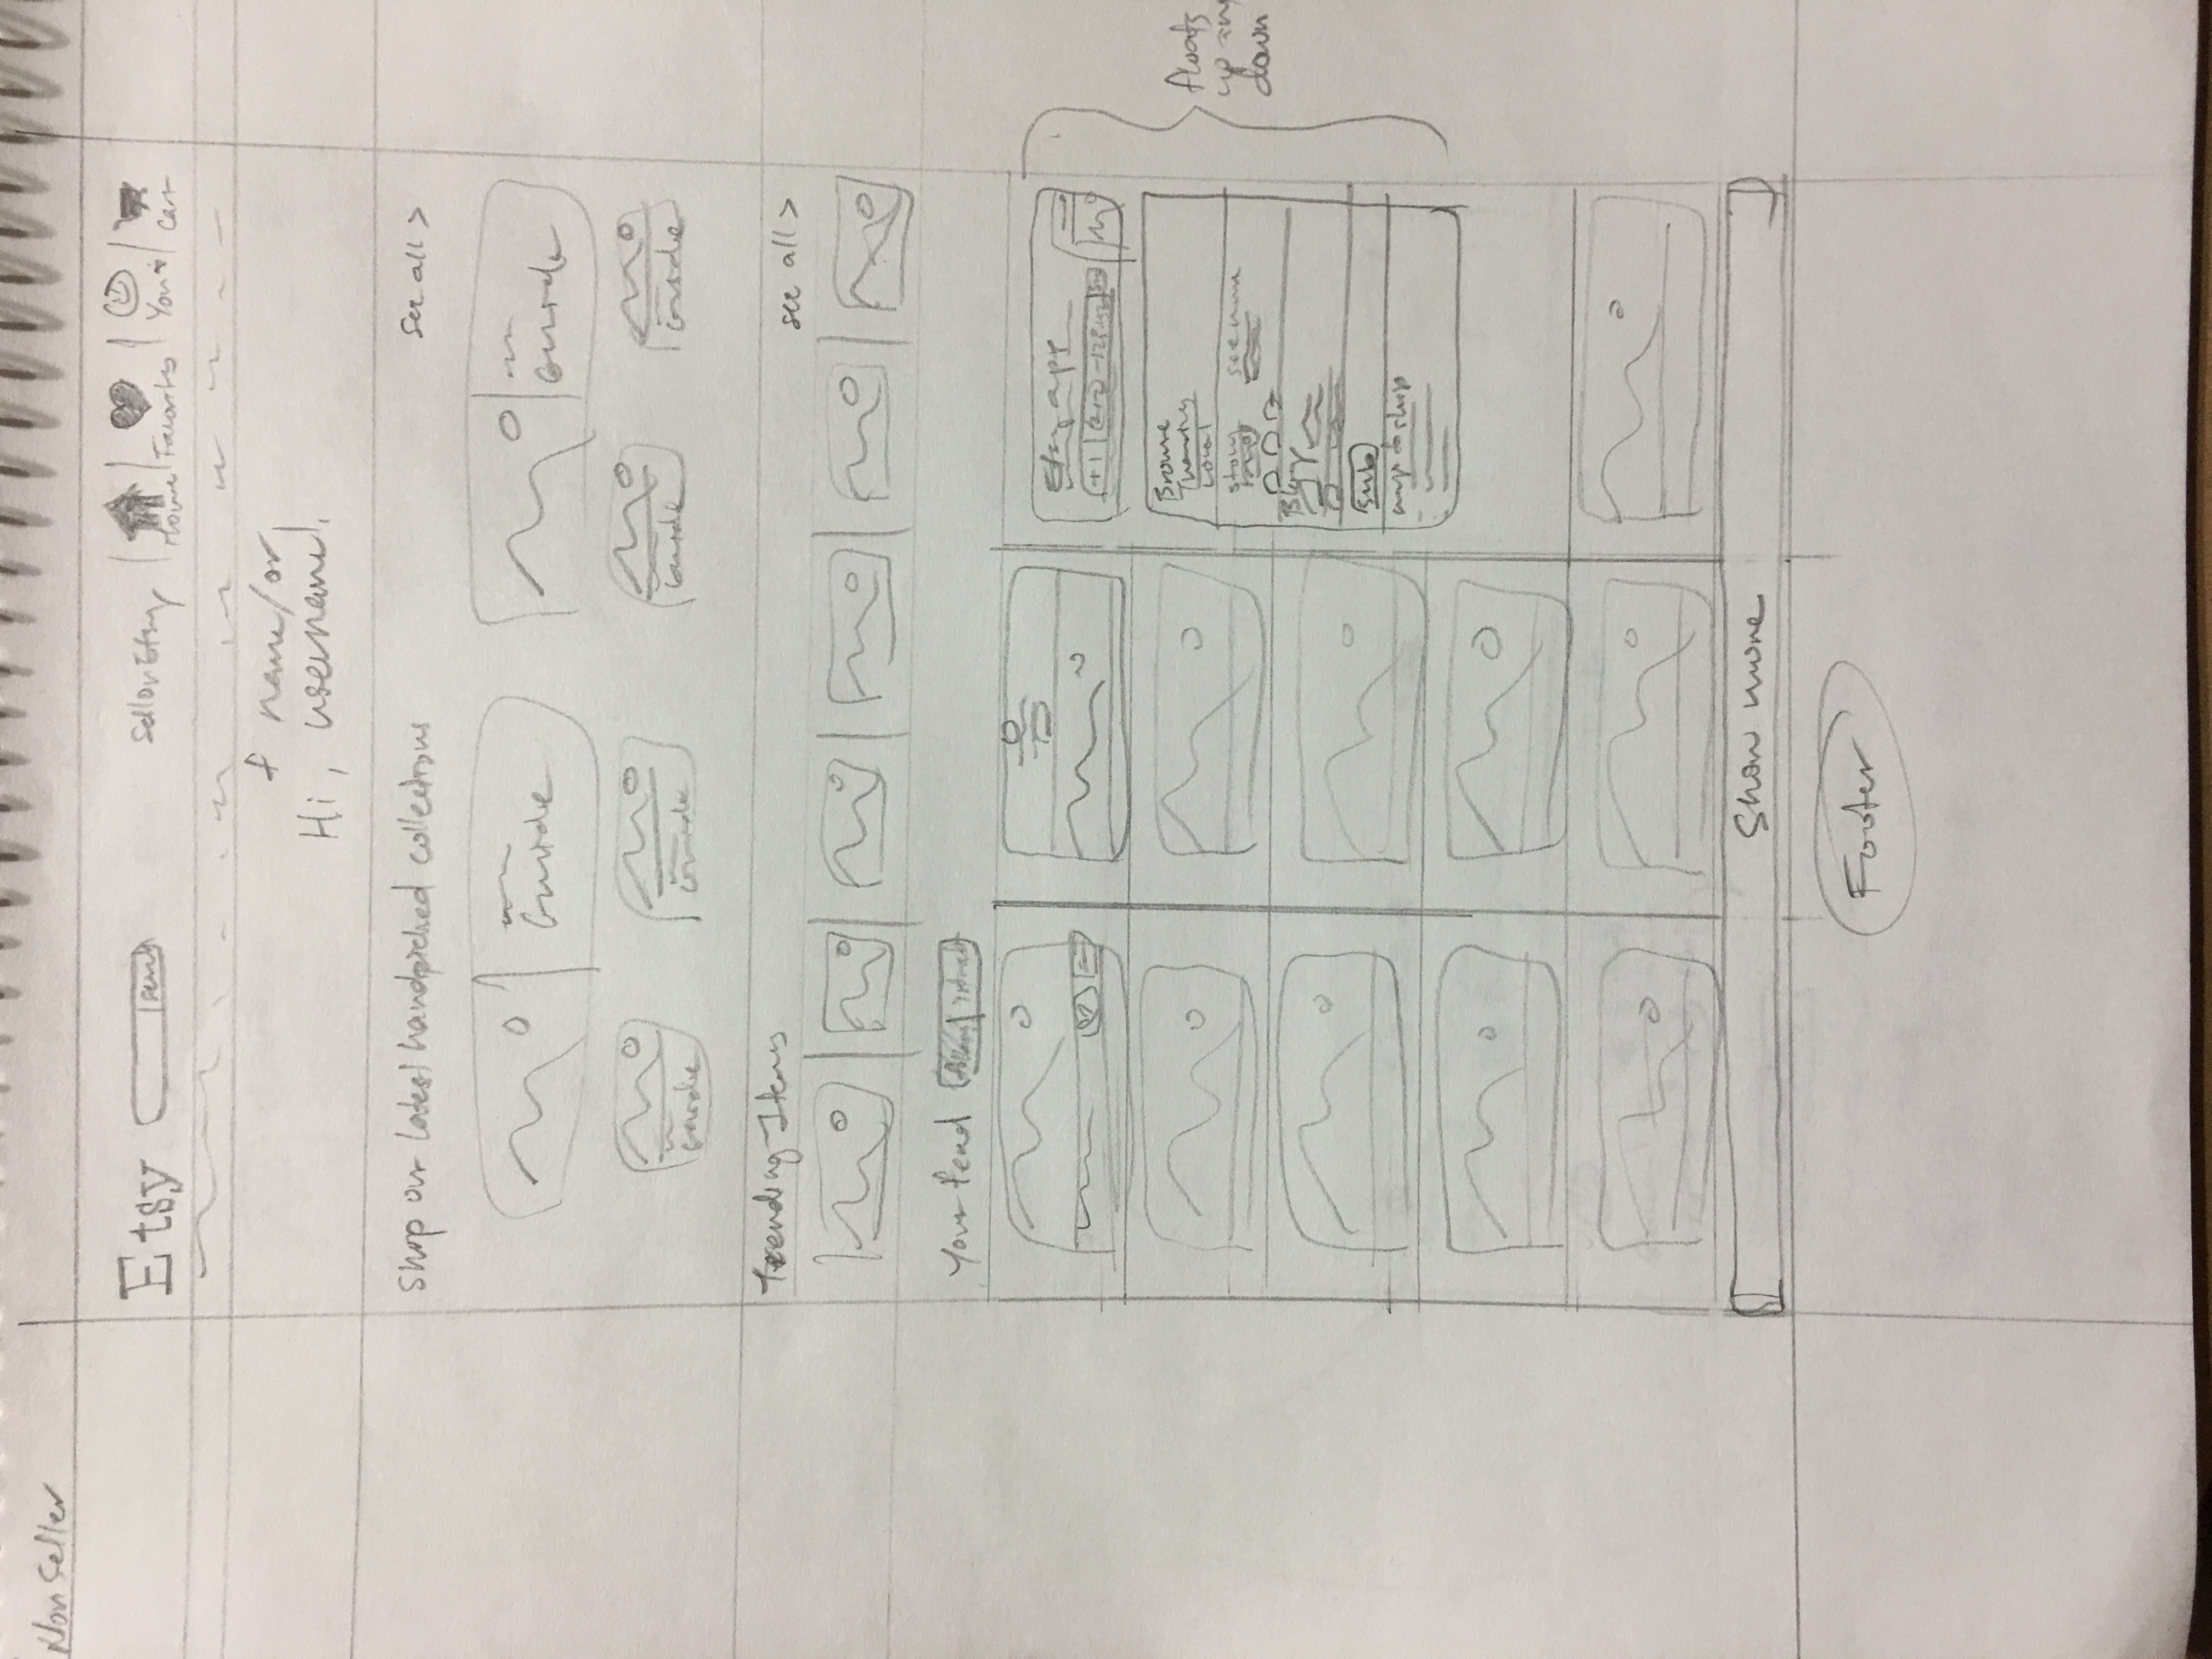 Non Seller
Etsy
Sell on Etsy Home Favorites You Cart
f name/or
Hi, username!
Shop our latest handpicked collections see all >
Guide Guide
Guide Guide Guide Guide
Trending Items see all >
Your feed
Etsy app
+1
Browse
Local
story see more
Blog
Sub
floats
up and
down
Show more
Footer